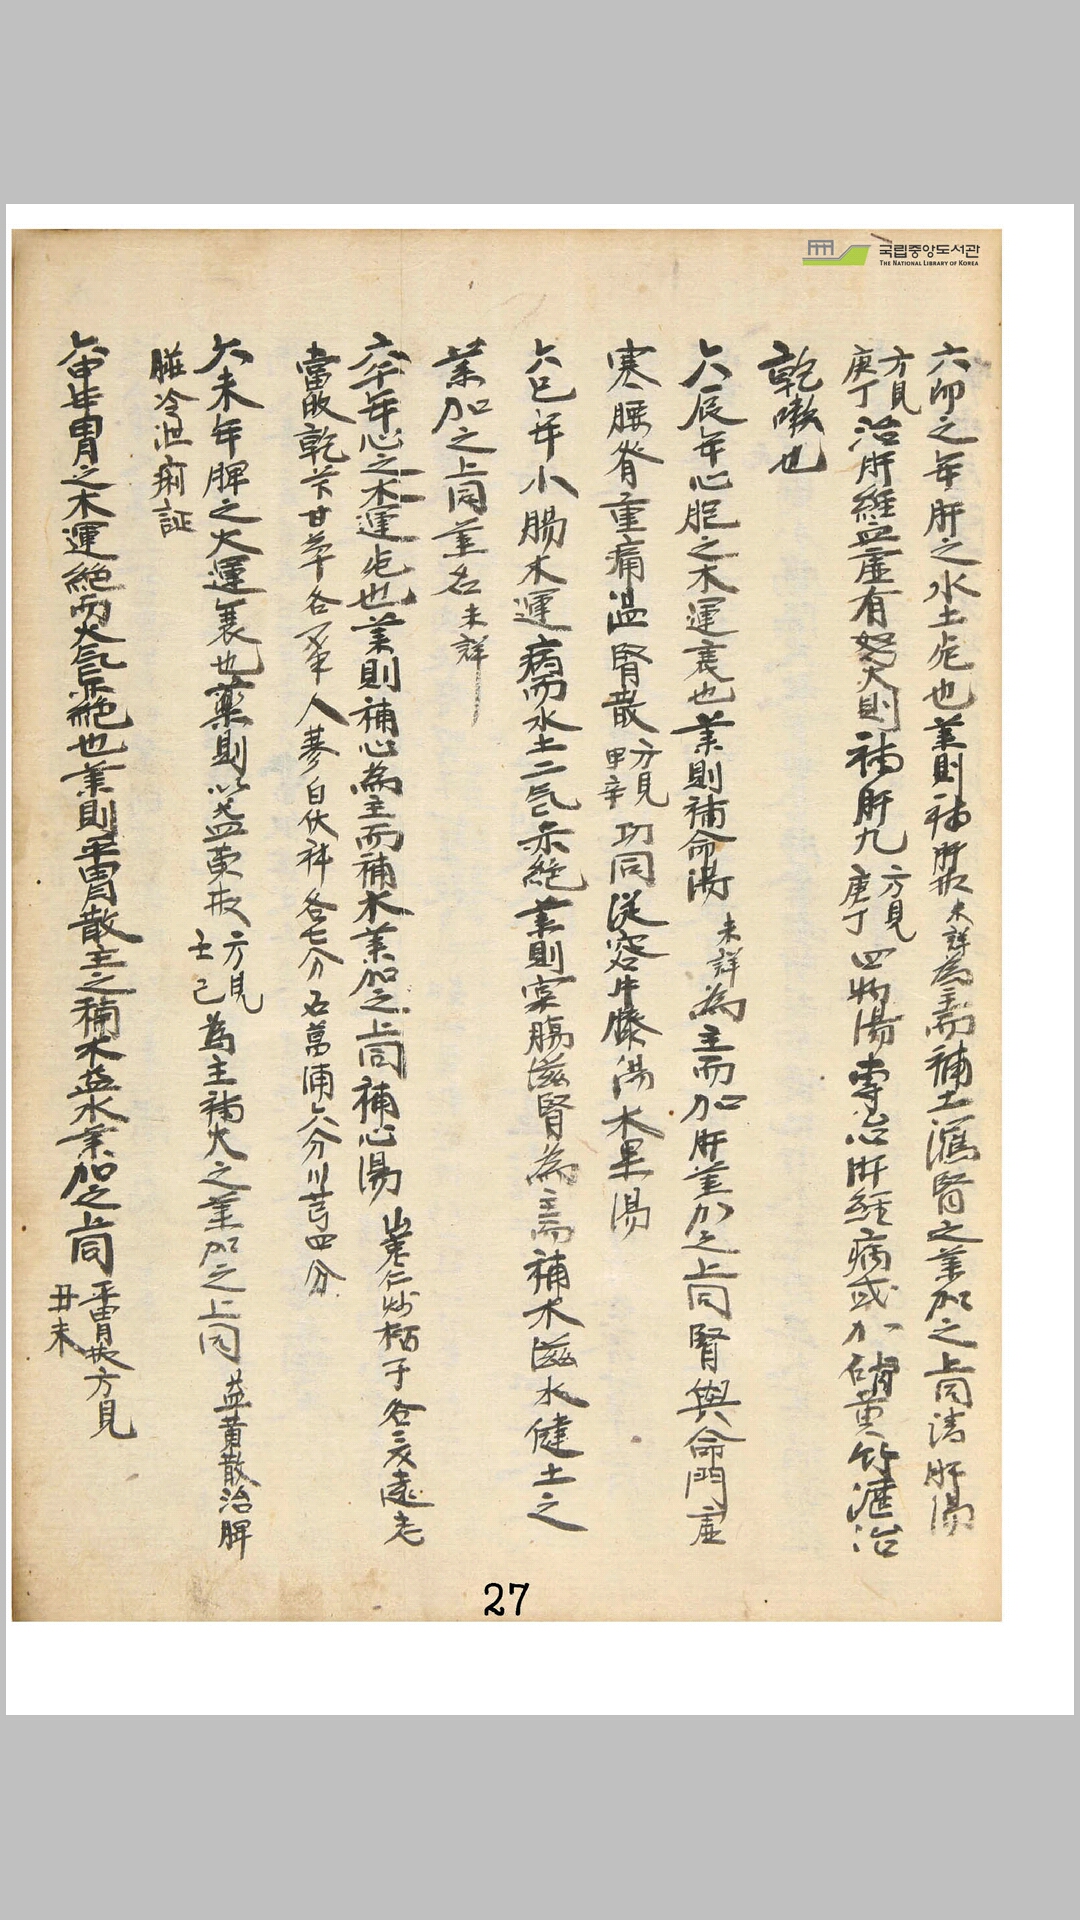 국립중앙도서관
THE NATIONAL LIBRARY OF KOREA
六卯之年肝之水土疟也薬則補肝散未詳為主而補土瀉腎之薬加之上同清肝湯
方見庚丁治肝經血虛有怒火則補肝丸方見庚丁四物湯專治肝經病或加硝黄竹瀝治
乾嗽也
六辰年心胞之木運衰也薬則補命湯未詳為主而加肝薬加之上同腎與命門虛
寒腰脊重痛温腎散方見甲辛功同從容牛膝湯木果湯
六巳年小腸木運病而水土二气亦絶薬則実腸滋腎為主而補木滋水健土之
薬加之上同薬名未詳
六午年心之木運疟也薬則補心為主而補木薬加之上同補心湯 山棗仁炒栢子各三戔遠志
當敀乾芐甘草各一戔半人蔘白伏神各七分石菖蒲六分川芎四分
六未年脾之火運衰也薬則以益黄散方見壬己為主補火之薬加之上同 益黄散治脾
臓冷泄痢証
六申年胃之木運絶而火气亦絶也薬則平胃散主之補木益水薬加之上同平胃散方見丑未
27